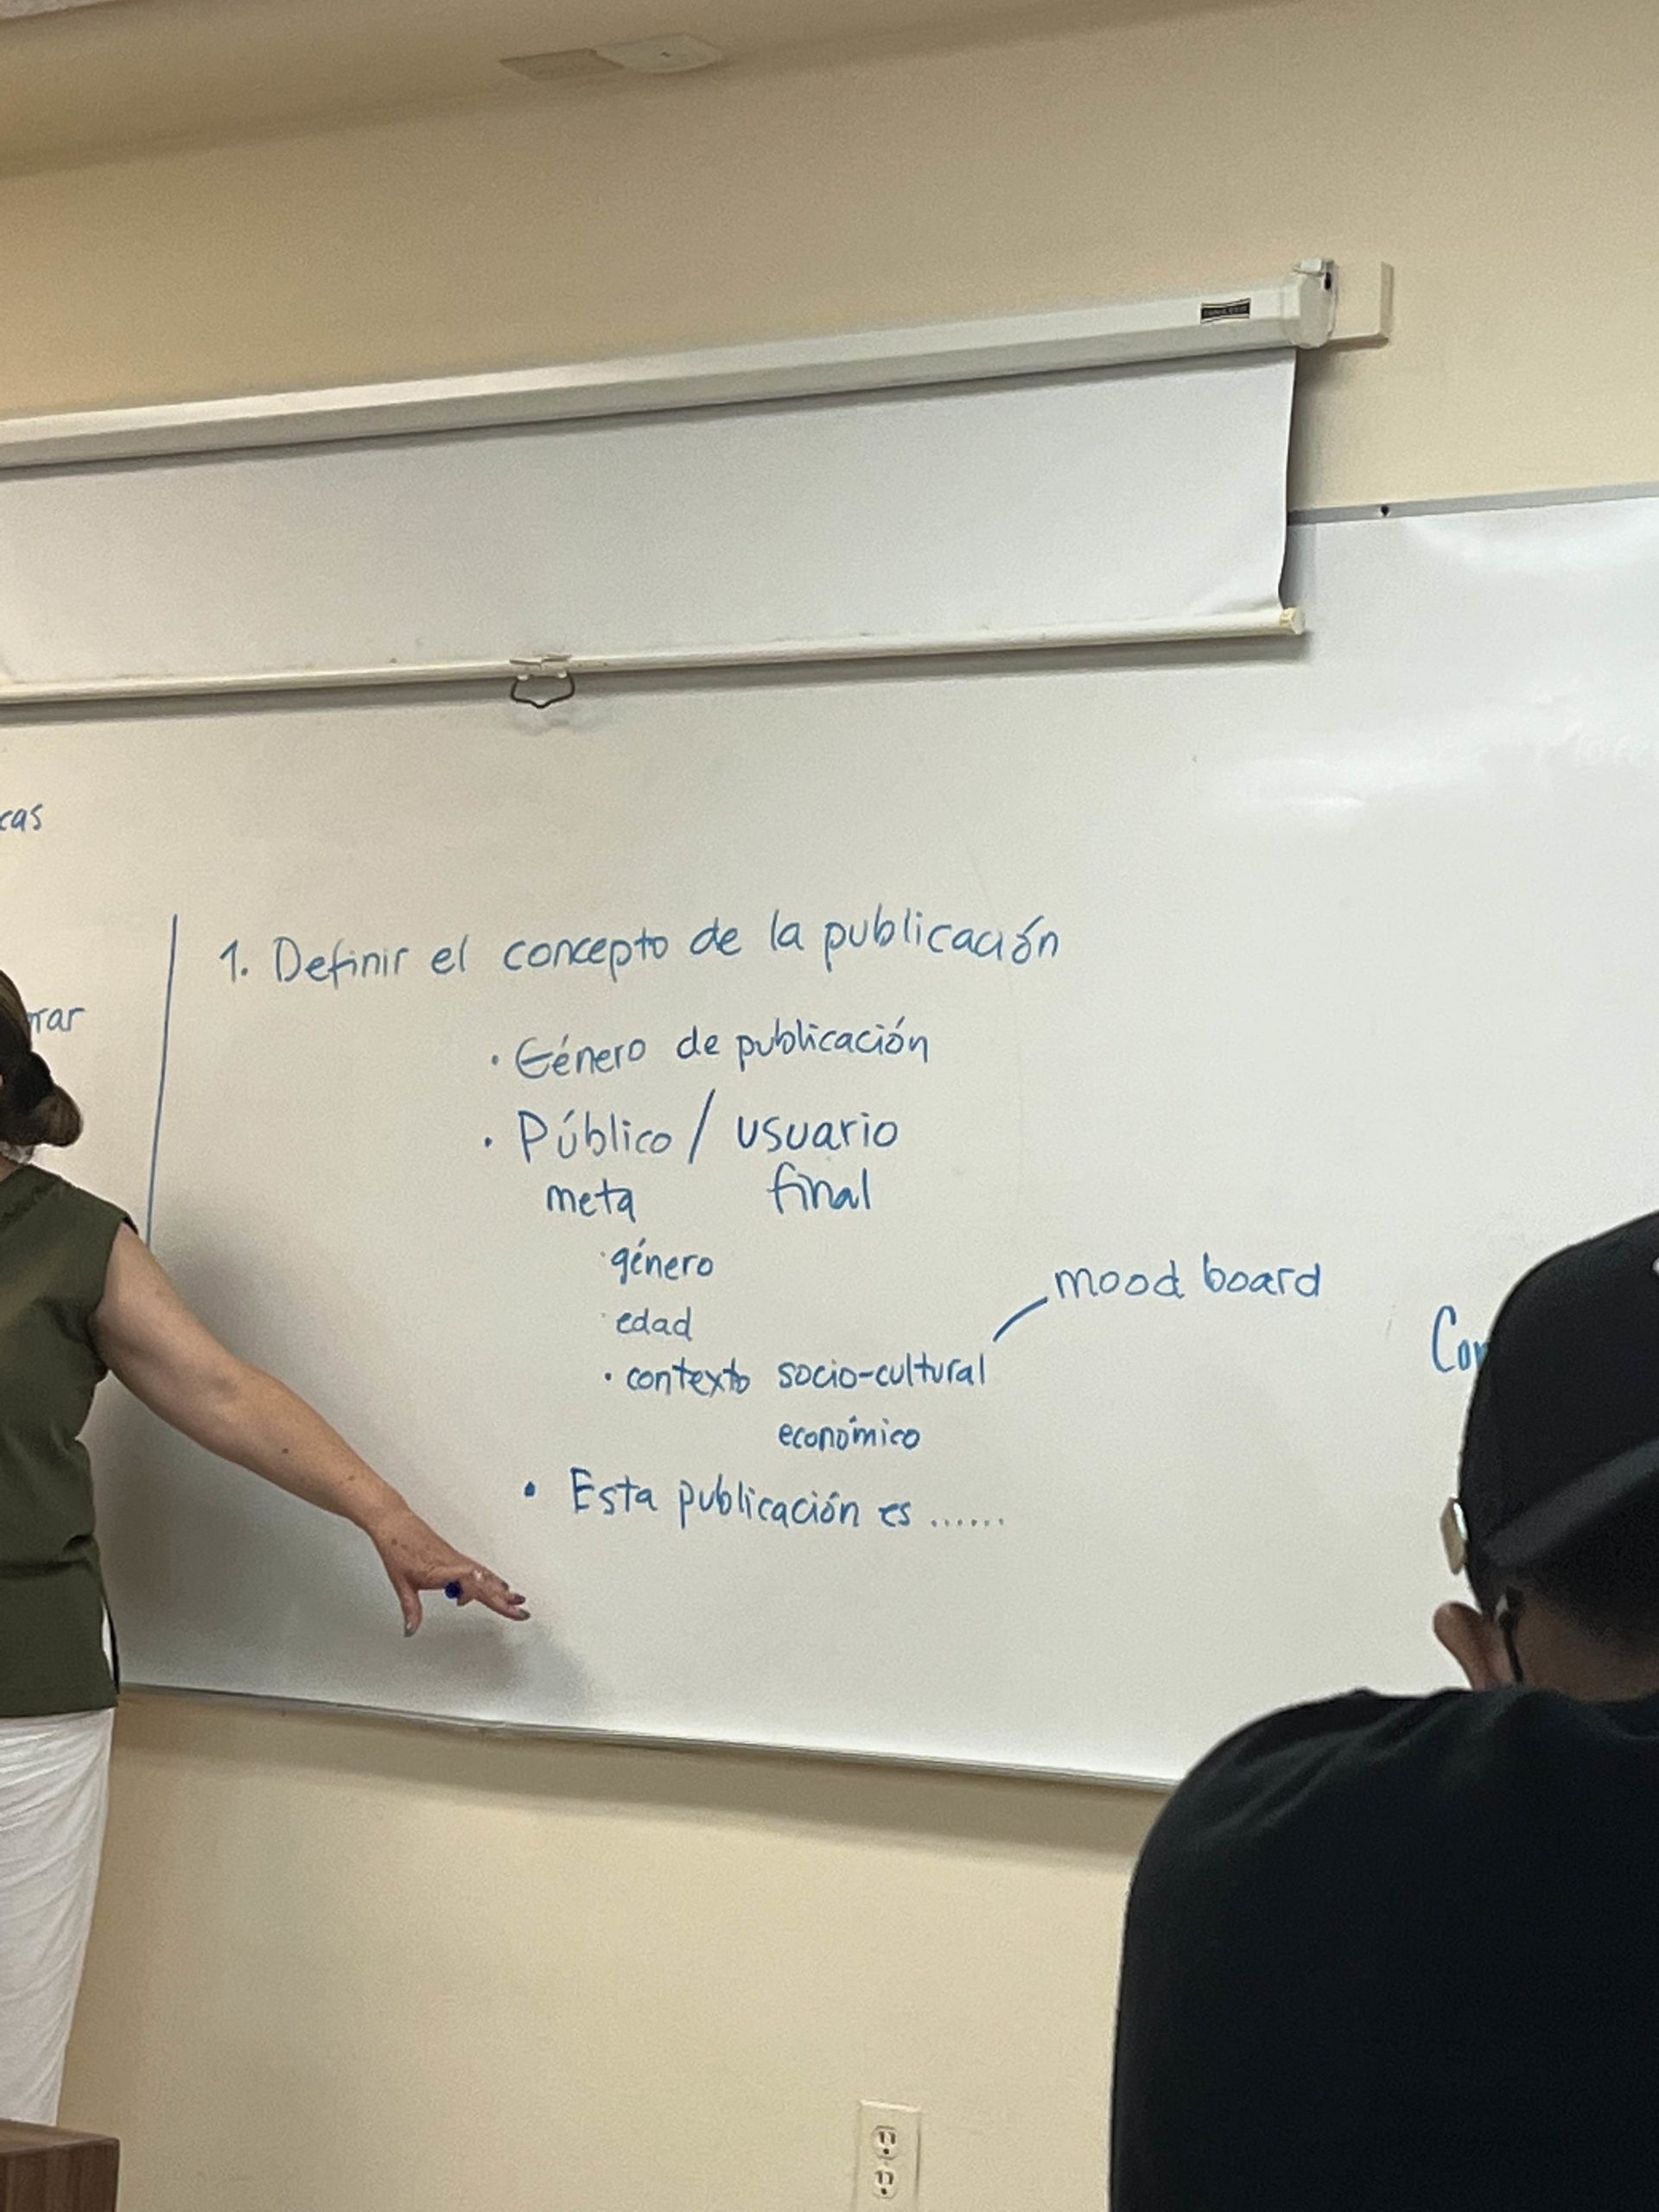 1. Definir el concepto de la publicación
· Género de publicación
· Público / usuario
meta final
· género
· edad
· contexto socio-cultural
mood board
económico
· Esta publicación es ......